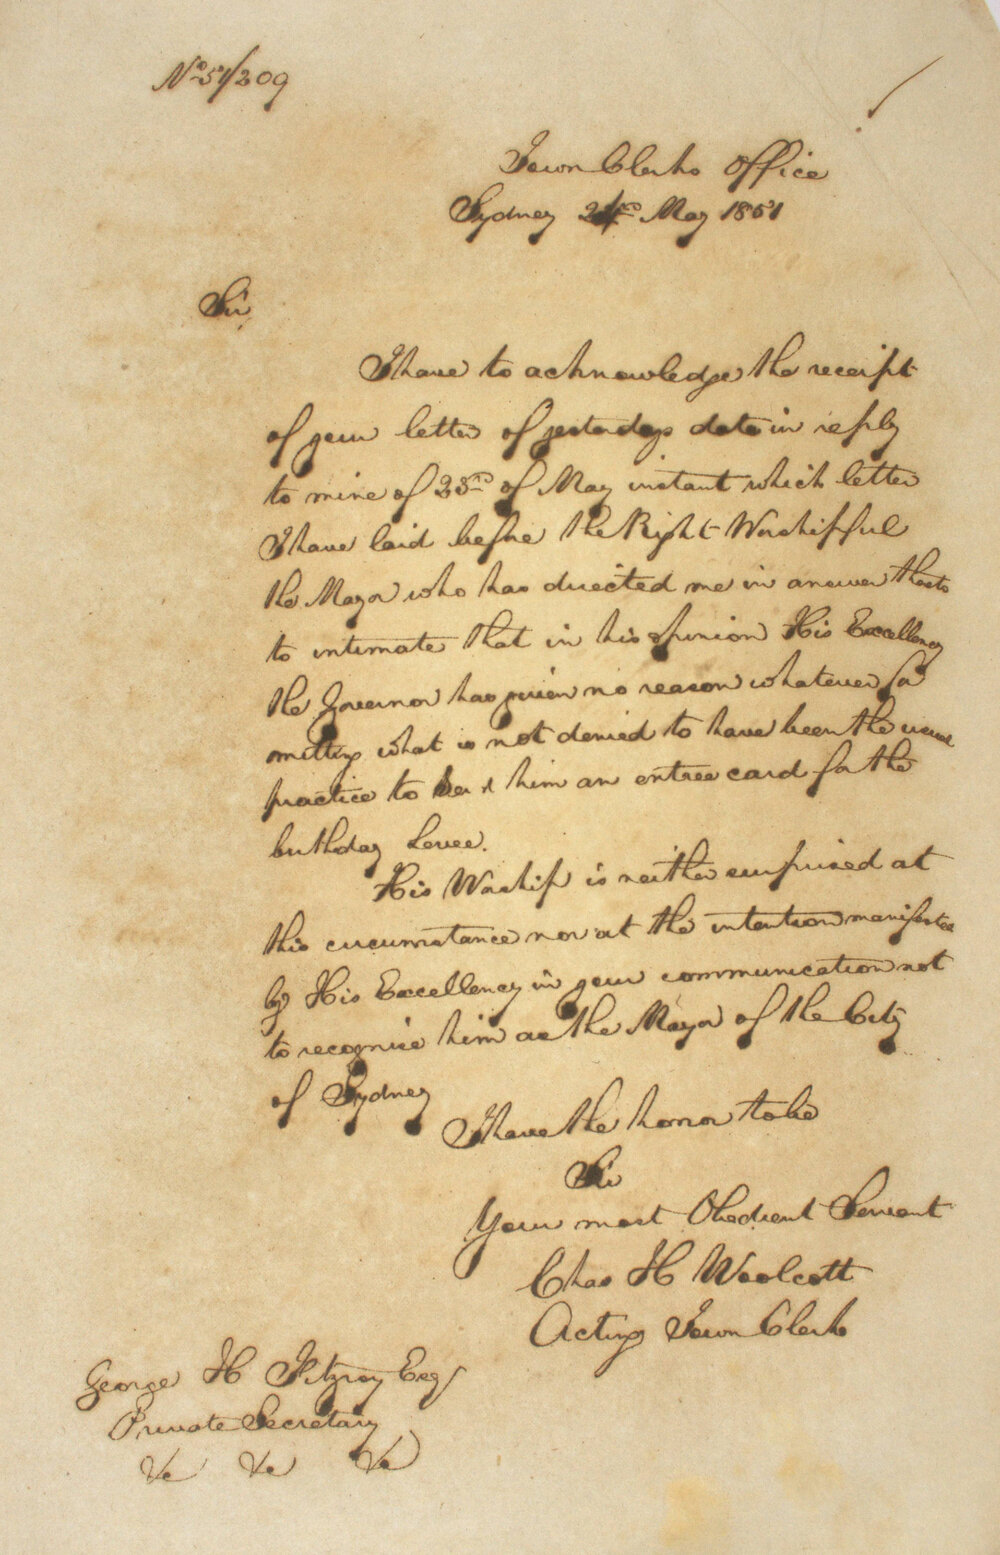 No 51/209
Town Clerks Office
Sydney May 1851
Sir
I have to acknowledge the receipt
of your letter of yesterdays date in reply
to mine of 23rd of May instant which letter
I have laid before the Right Worshipful
the Mayor who has directed me in answer thereto
to intimate that in his opinion His Excellency
the Governor has given no reason whatever for
omitting what is not denied to have been the usual
practice to send him an entree card for the
birthday Levee.
His Worship is neither surprised at
this circumstance nor at the intention manifested
by His Excellency in your communication not
to recognise him as the Mayor of the City
of Sydney
I have the honor to be
Sir
Your most Obedient Servant
Chas H Woolcott
Acting Town Clerk
George H Fitzroy Esq
Private Secretary
&c &c &c